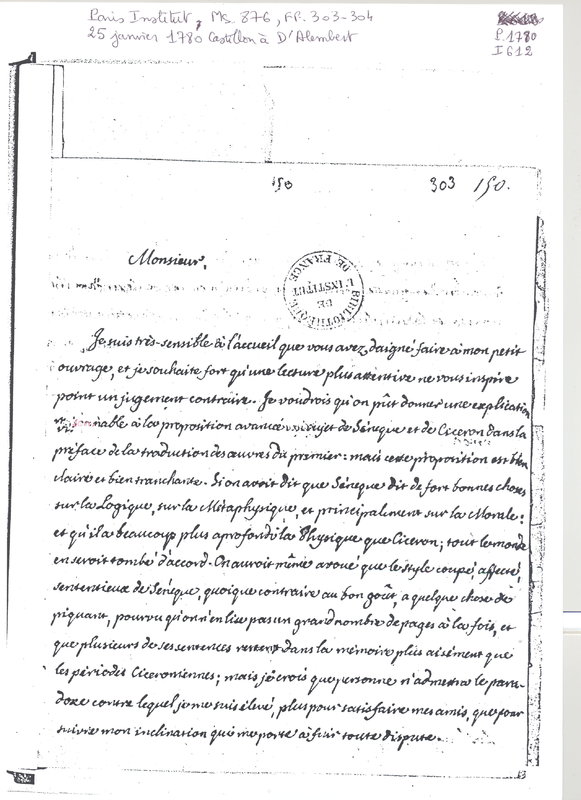 Paris Institut, Ms. 876, FF. 303-304
25 janvier 1780 Castillon à D'Alembert
P. 1780
I 612
150
303 150.
Monsieur,
BIBLIOTHEQUE DE L'INSTITUT DE FRANCE
Je suis très-sensible à l'accueil que vous avez daigné faire à mon petit
ouvrage, et je souhaite fort qu'une lecture plus attentive ne vous inspire
point un jugement contraire. Je voudrois qu'on pût donner une explication
à la proposition avancée au sujet de Séneque et de Ciceron dans la
préface de la traduction des œuvres du premier: mais cette proposition est bien
claire et bien tranchante. Si on avoit dit que Séneque dit de fort bonnes choses
sur la Logique, sur la Métaphysique, et principalement sur la Morale:
et qu'il a beaucoup plus aprofondi la Physique que Ciceron; tout le monde
en seroit tombé d'accord. On auroit même avoué que le style coupé, affecté,
sentencieux de Séneque, quoique contraire au bon goût, a quelque chose de
piquant, pourvu qu'on n'en lise pas un grand nombre de pages à la fois, et
que plusieurs de ses sentences restent dans la mémoire plus aisément que
les périodes Ciceroniennes; mais je crois que personne n'admettra le para-
doxe contre lequel je me suis élevé, plus pour satisfaire mes amis, que pour
suivre mon inclination qui me porte à fuir toute dispute.